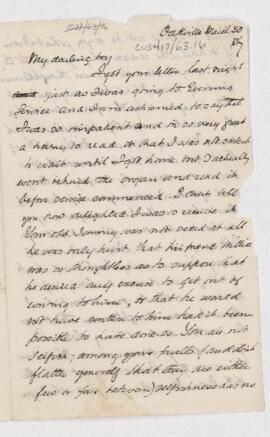 Oakville March 30
CUS417/63.16
My darling boy
I got your letter last night
just as I was going to Evening
Service and I am ashamed to say that
I was so impatient and in so very great
a hurry to read it that I was not content
to wait until I got home but I actually
went behind the organ and read it
before service commenced. I can't tell
you how delighted I was to receive it
Your old was not vexed at all
he was only hurt that his friend
was so thoughtless as to suppose that
he desired any excuse to get out of
writing to him, or that he would
not have written to him had it been
possible to have done so. You are not
selfish; among your faults (and don't
flatter yourself that they are either
few or far between) selfishness has no